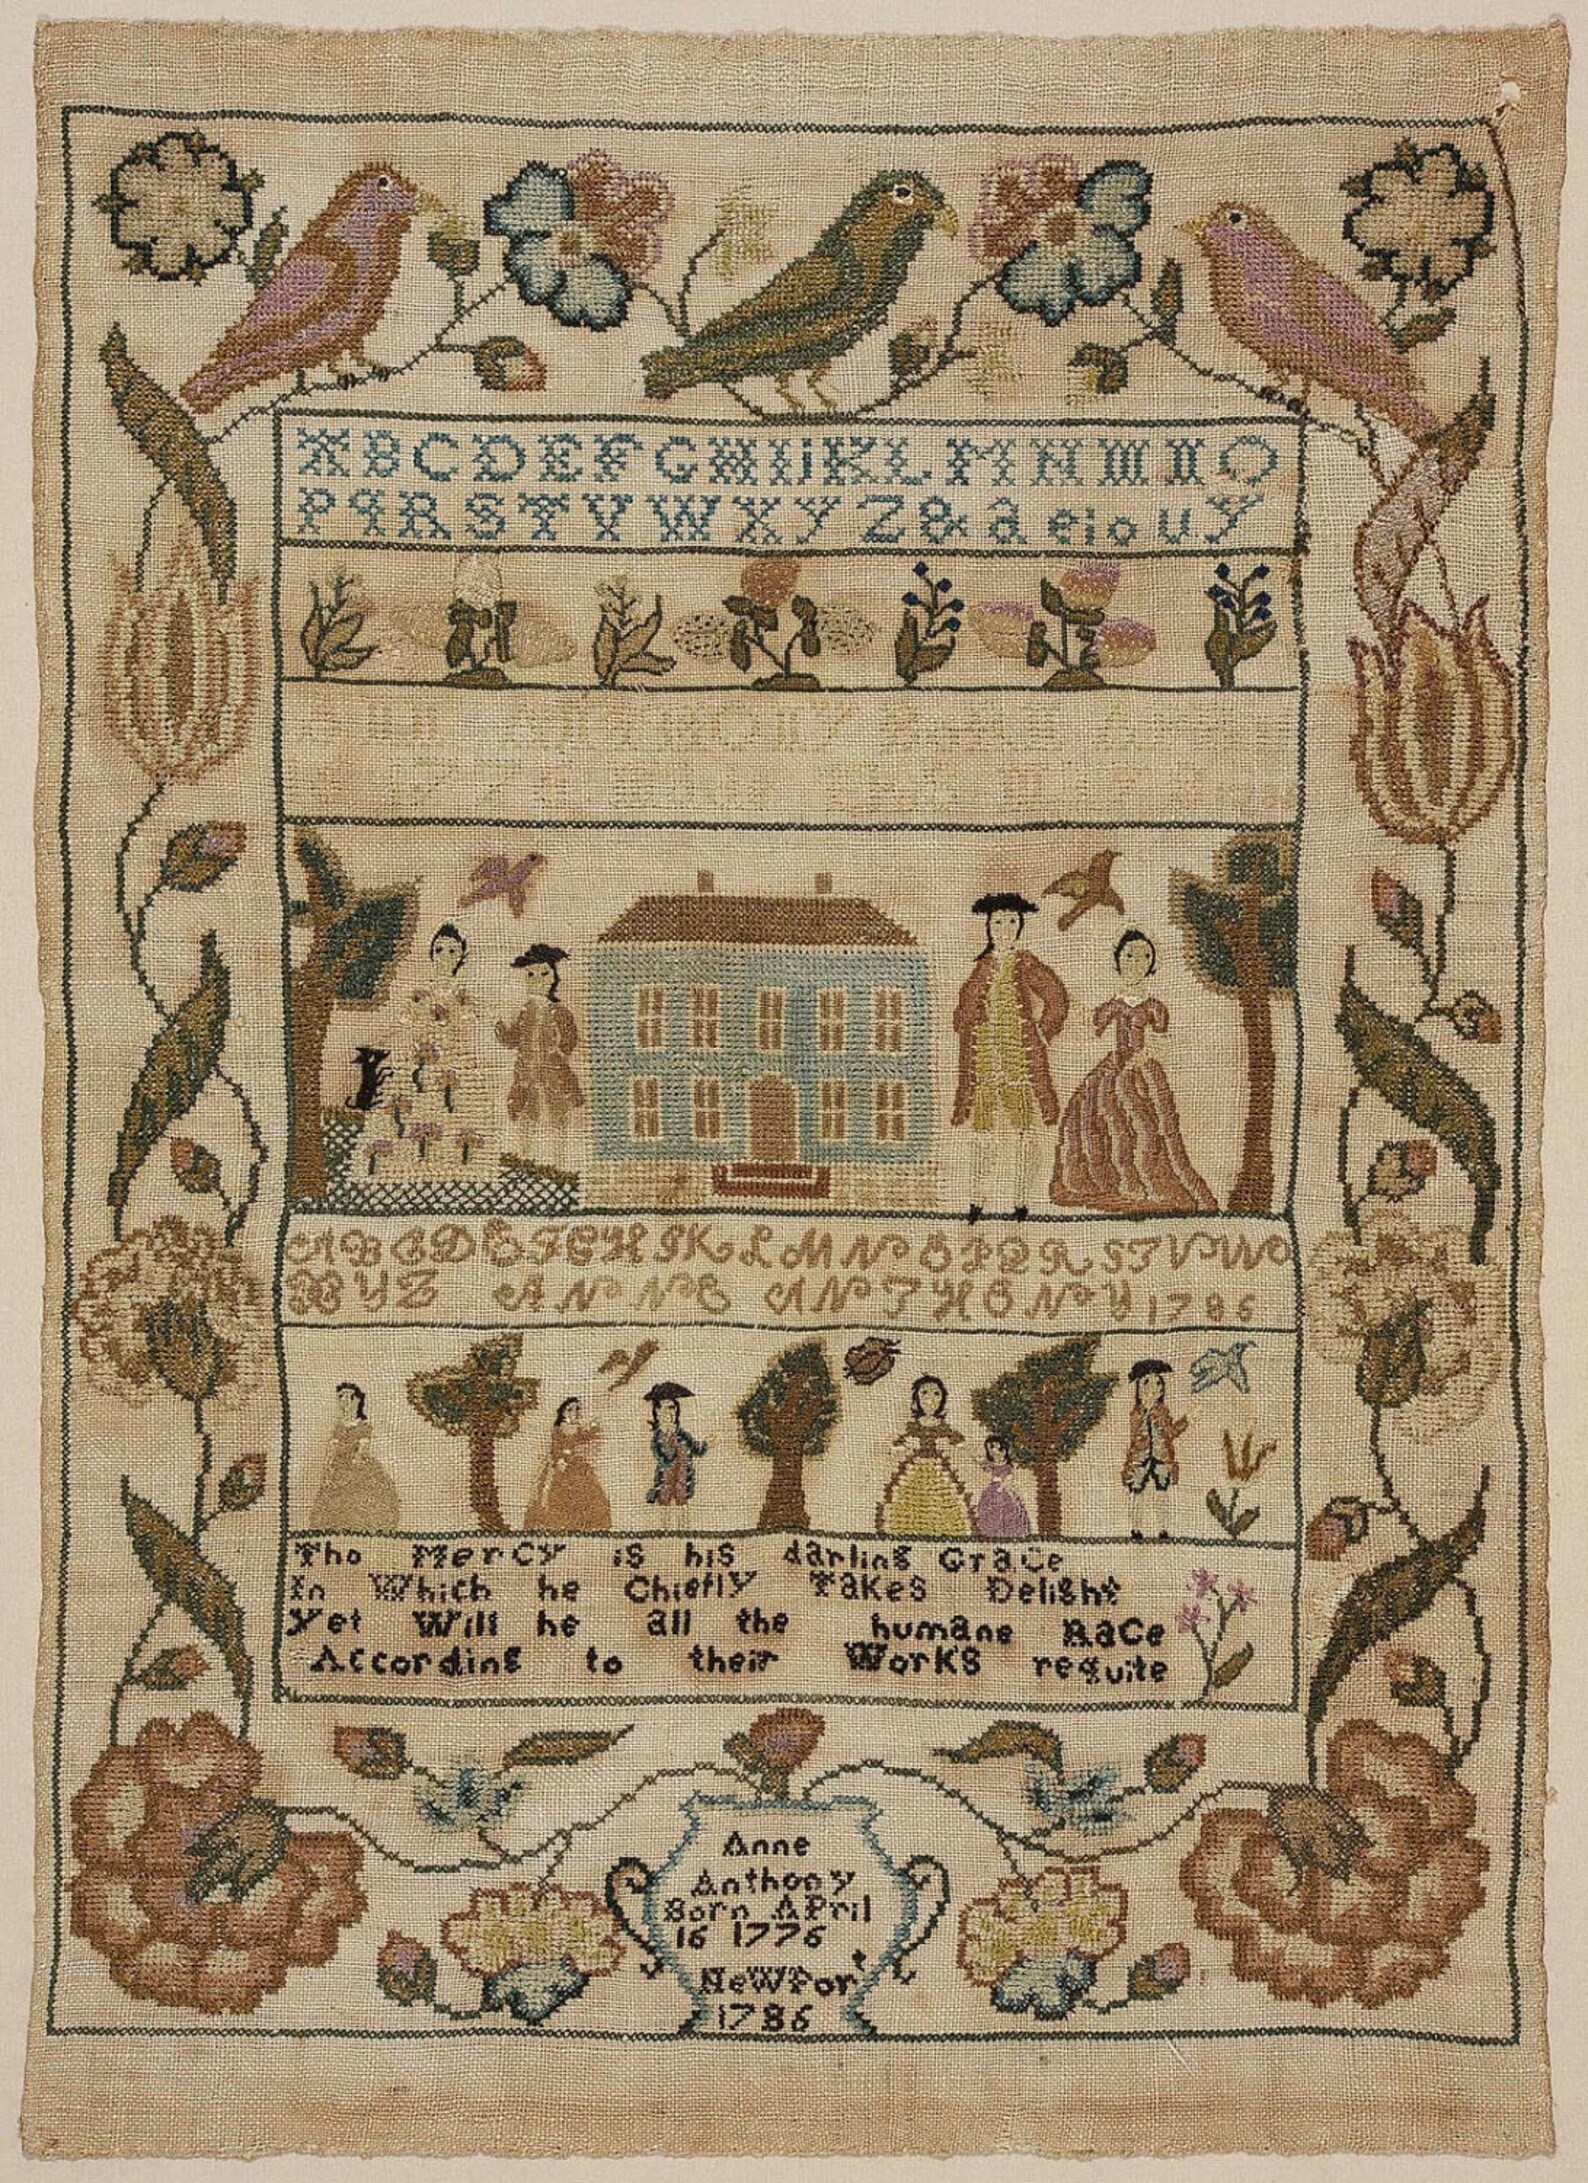 A B C D E F G H I J K L M N O
P q R S T V W X Y Z & a e i o u y
A B C D E F G H I K L M N O P Q R S T V W
X Y Z ANNE ANTHONY 1786
Tho Mercy is his darling Grace
In Which he Chiefly Takes Delight
Yet Will he all the humane Race
According to their Works requite
Anne
Anthony
Born April
16 1776
Newport
1786